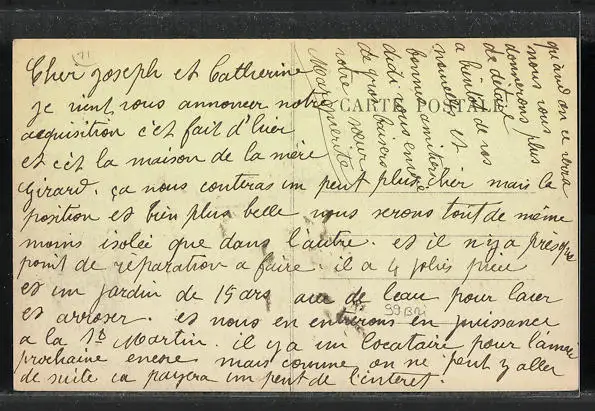 Cher Joseph et Catherine
je vient vous annoncer notre
acquisition c'et fait d'hier
et c'et la maison de la mère
Girard. ça nous conteras un peut plus cher mais la
position et bien plus belle nous serons tout de même
moins isolée que dans l'autre. et il n'y a présque
point de réparation a faire. il a 4 jolies pièce
et un jardin de 15 ars avec de l'eau pour laver
et arroser. et nous en entrerons en puissance
a la St Martin. il y a un locataire pour l'année
prochaine encore mais comme on ne peut y aller
de suite ca payera un peut de l'interet.
CARTE POSTALE
quand on ce verra
nous vous
donnerons plus
de détaile
a bientôt de vos
nouvelles et
bonne amitiers
didi vous envoie
de gros baisers
votre sœur
Marguerite
39 Bri